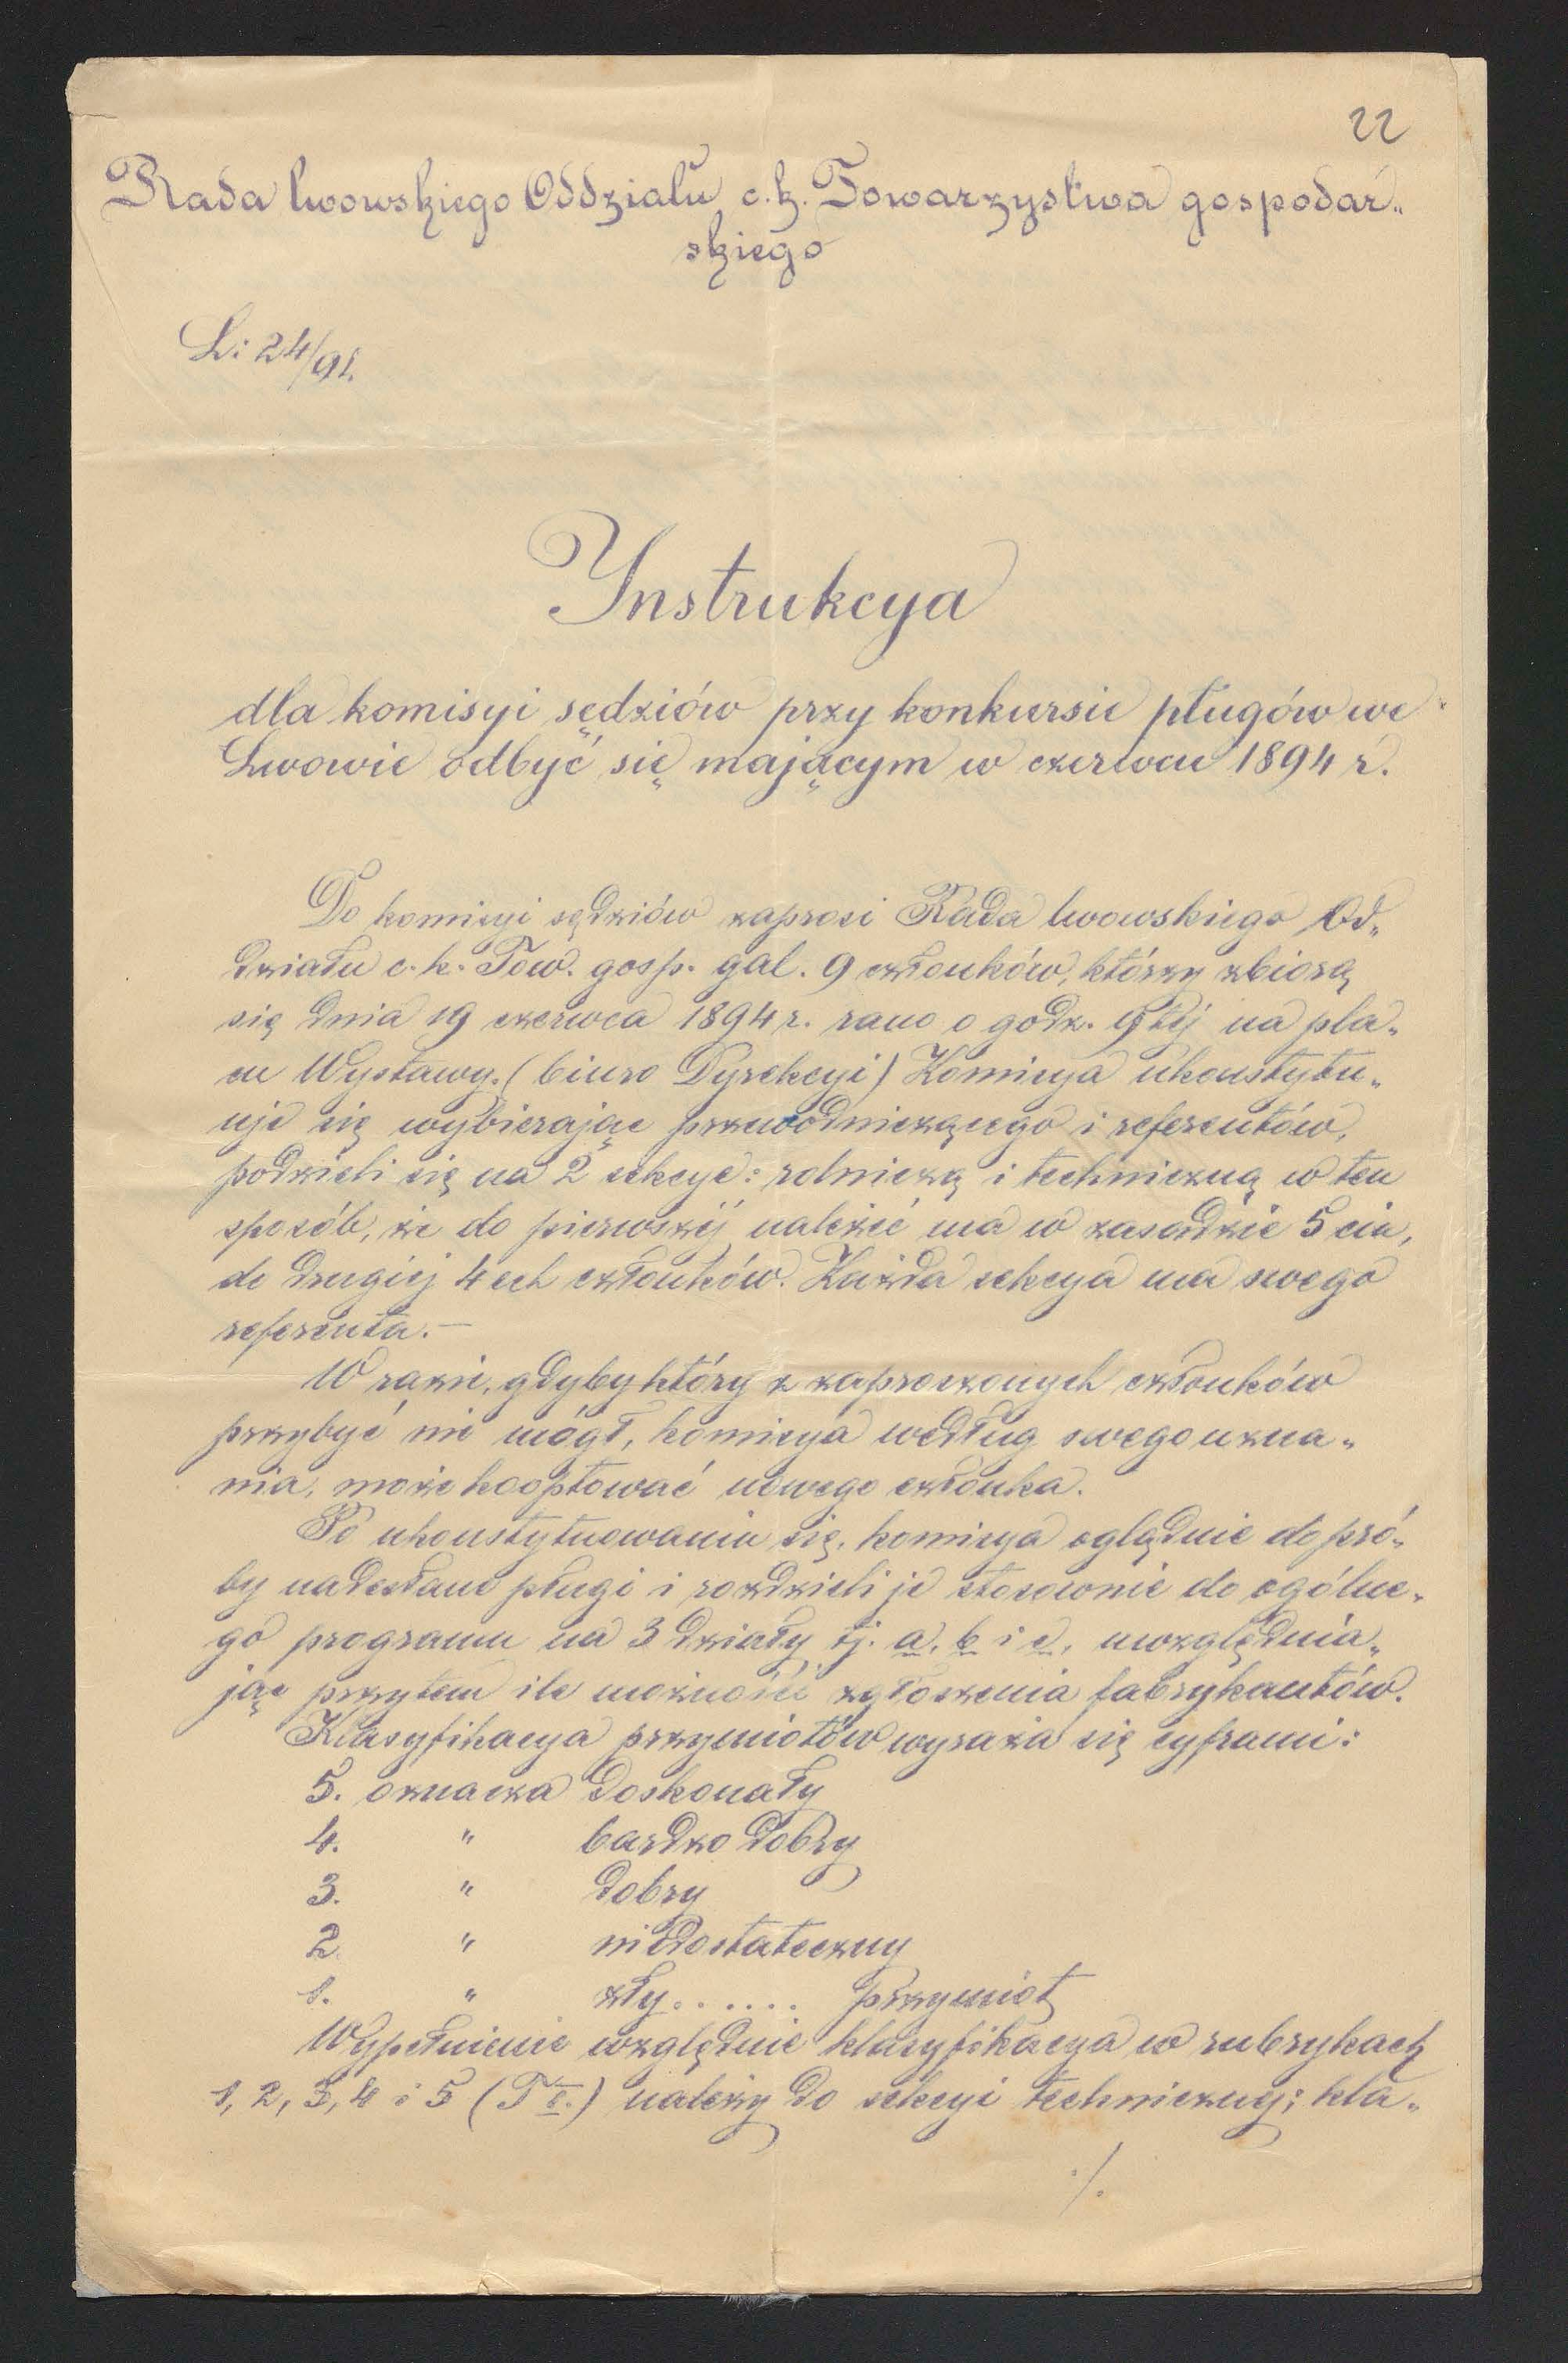 22
Rada lwowskiego Oddziału c. k. Towarzystwa gospodar„
skiego
L: 24/91.
Instrukcya
dla komisyi sędziów przy konkursie pługów we
Lwowie odbyć się mającym w czerwcu 1894 r.
Do komisyi sędziów zaprosi Rada lwowskiego Od„
działu c. k. Tow. gosp. gal. 9 członków, którzy zbiorą
się dnia 19 czerwca 1894 r. rano o godz. 9téj na pla„
cu Wystawy. (biuro Dyrekcyi) Komisya ukonstytu„
uje się wybierając przewodniczącego i referentów,
podzieli się na 2 sekcye: rolniczą i techniczną w ten
sposób, że do pierwszéj należéć ma w zasadzie 5cia,
do drugiej 4ech członków. Każda sekcya ma swego
referenta.—
W razie, gdyby który z zaproszonych członków
przybyć nie mógł, komisya według swego uzna„
nia, może kooptować nowego członka.
Po ukonstytuowaniu się, komisya oglądnie do pró„
by nadesłane pługi i rozdzieli je stosownie do ogólne„
go programu na 3 działy tj. a, b i c, uwzględnia„
jąc przytem ile możności zgłoszenia fabrykantów.
Klasyfikacya przymiotów wyraża się cyframi:
5. oznacza doskonały
4. " bardzo dobry
3. " dobry
2. " niedostateczny
1. " zły...... przymiot
Wypełnienie względnie klasyfikacya w rubrykach
1, 2, 3, 4 i 5 (T I.) należy do sekcyi technicznej; kla„
./.